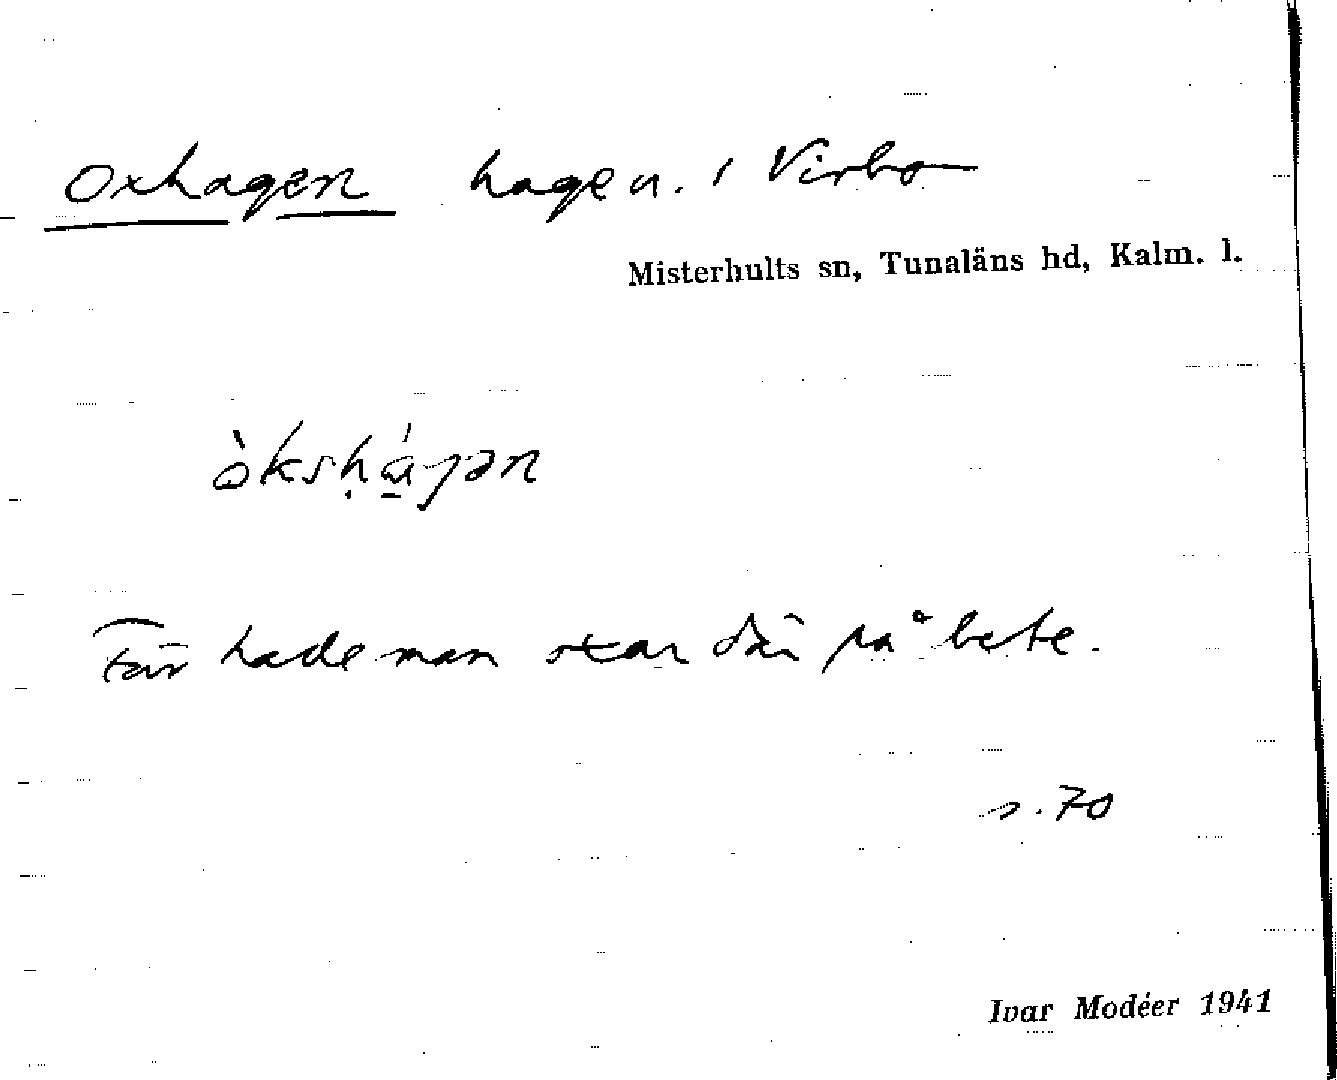 Oxhagen hage n. i Virbo
Misterhults sn, Tunaläns hd, Kalm. l.
òksḥá̱ɣən
Förr hade man oxar där på bete.
s. 70
Ivar Modéer 1941